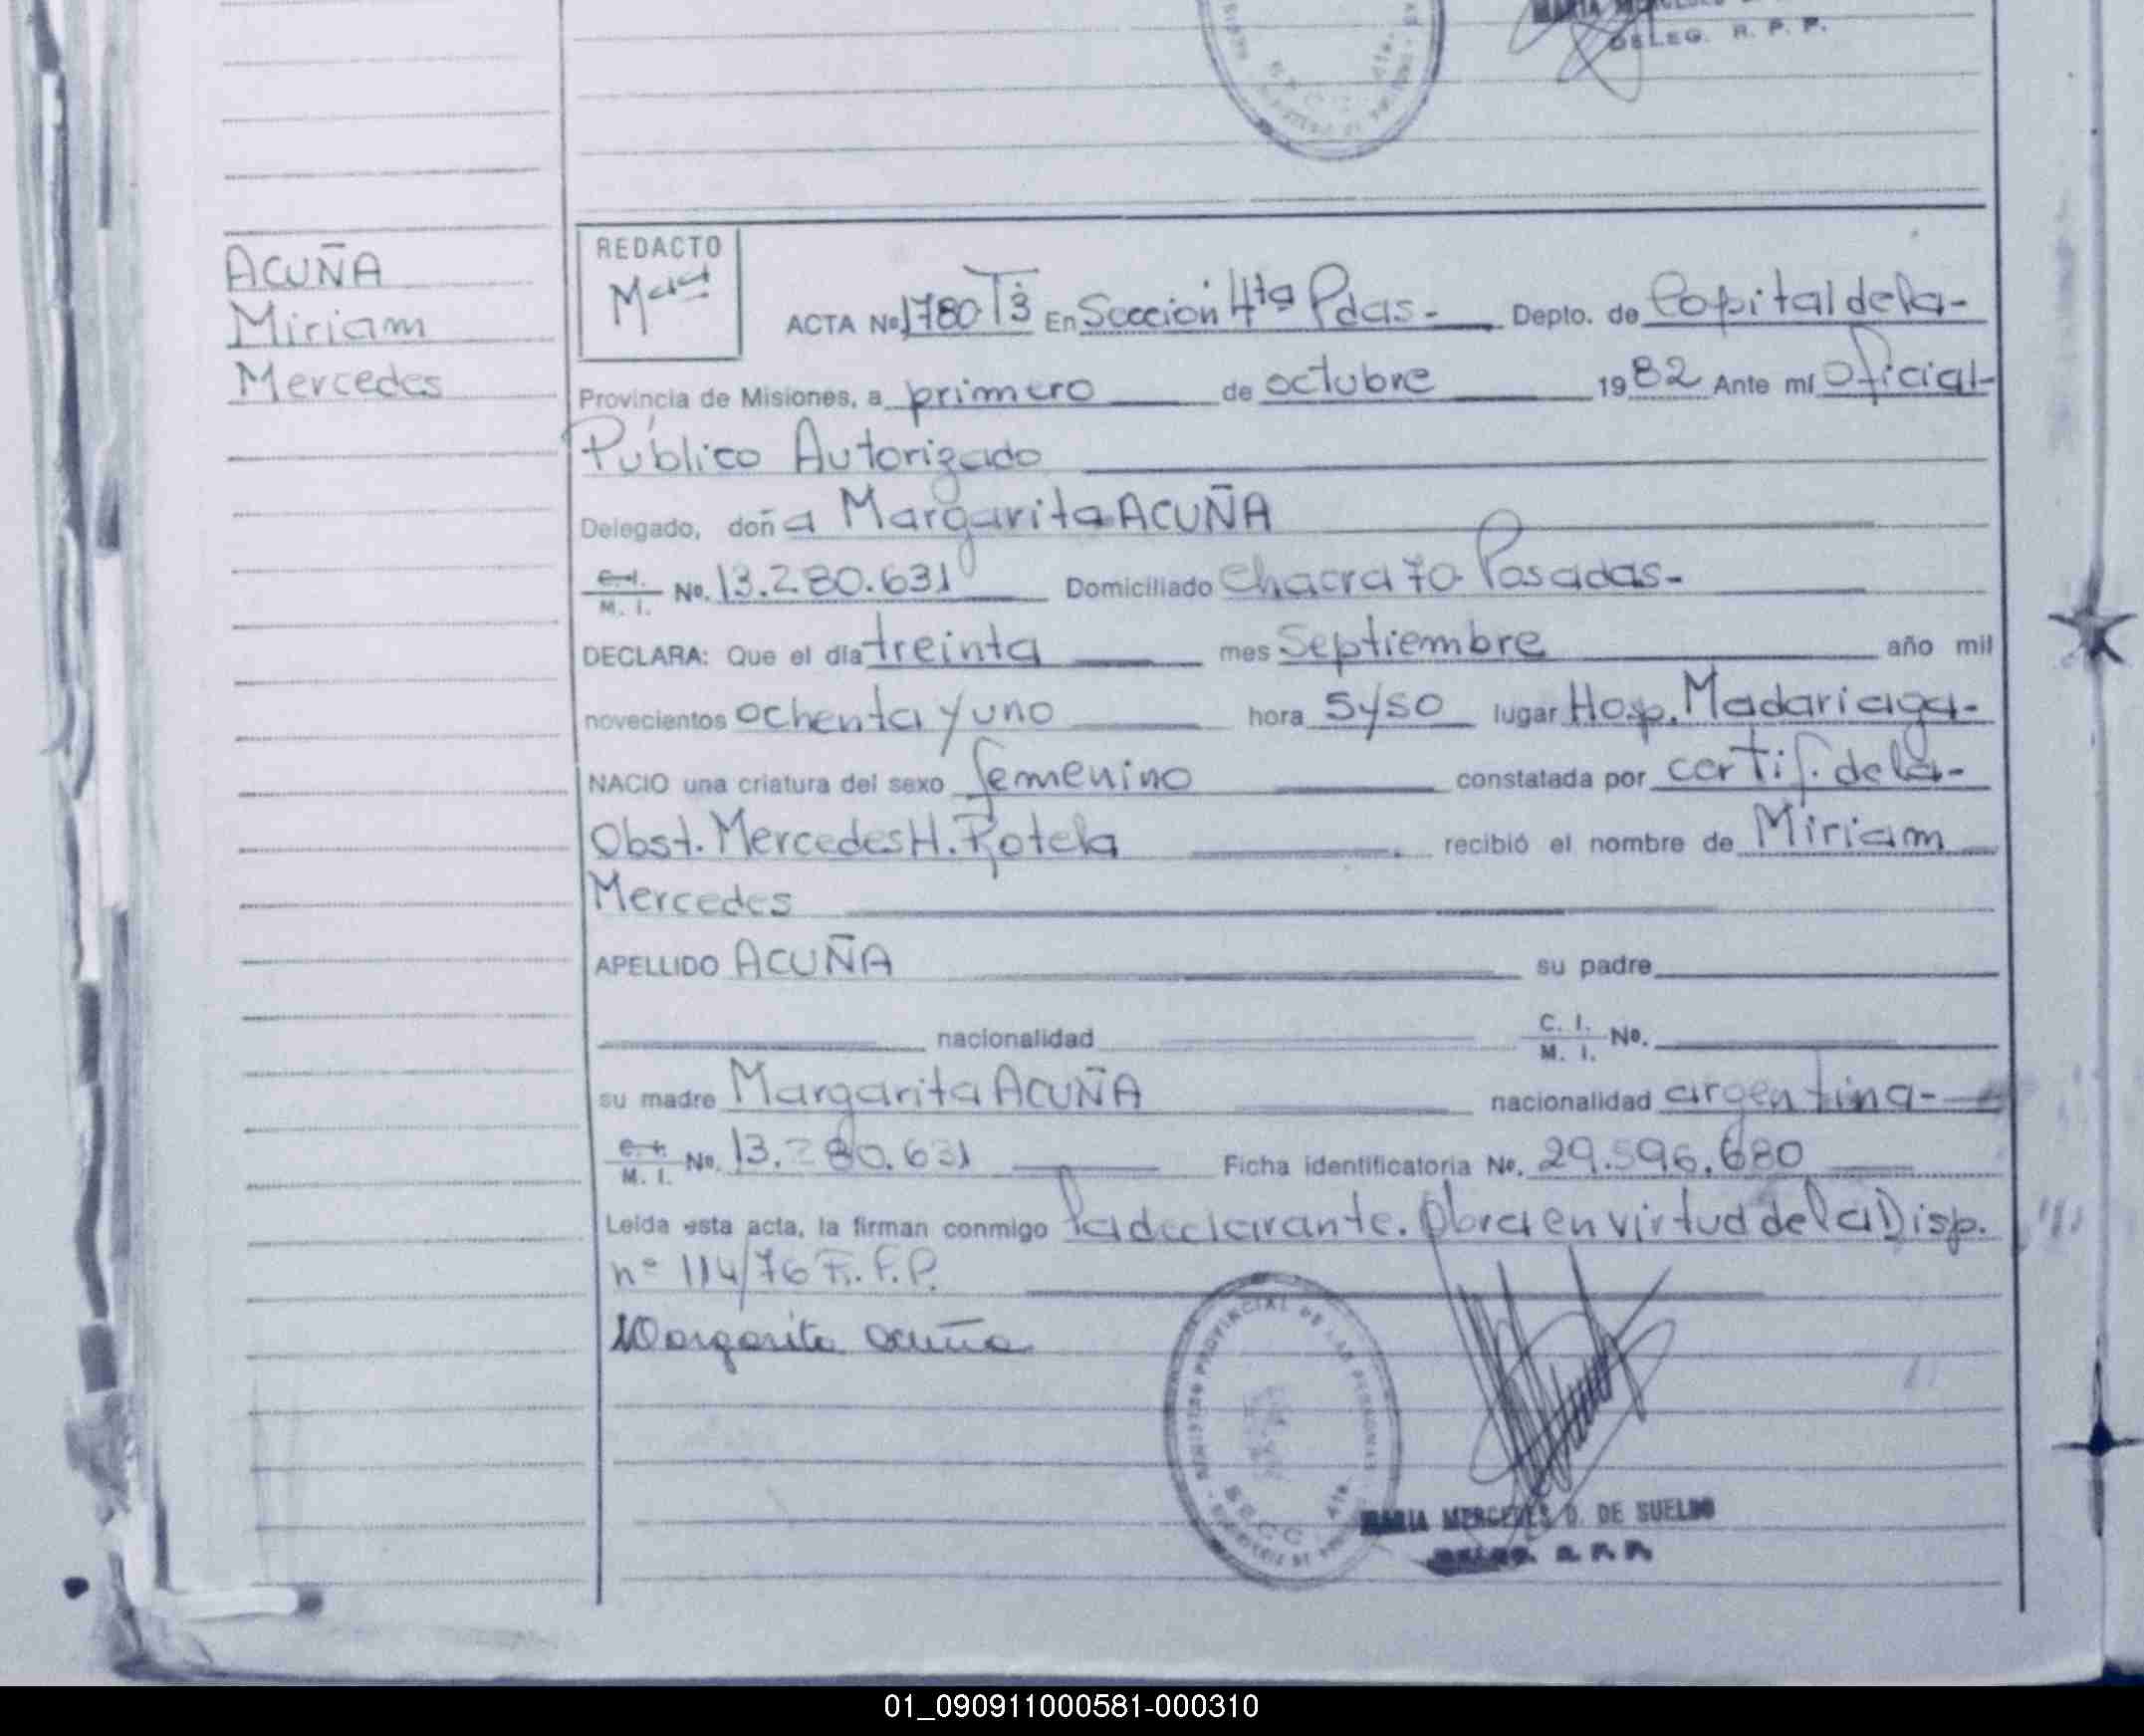 DELEG. R. P. P.
ACUÑA
Miriam
Mercedes
REDACTO
ACTA No 1780 T3 En Sección 4ta Pdas.- Depto. de Capital de la-
Provincia de Misiones, a primero de octubre 1982 Ante mí Oficial-
Público Autorizado
Delegado, doña Margarita ACUÑA
C.I. M. I. No. 13.280.631 Domiciliado Chacra 70- Posadas-
DECLARA: Que el día treinta mes Septiembre año mil
novecientos ochenta y uno hora 5y50 lugar Hosp. Madariaga-
NACIO una criatura del sexo femenino constatada por certif. de la-
Obst. Mercedes H. Rotela recibió el nombre de Miriam
Mercedes
APELLIDO ACUÑA su padre
nacionalidad C. I. M. I. No.
su madre Margarita ACUÑA nacionalidad argentina-
C.I. M. I. No. 13.280.631 Ficha identificatoria No. 29.596.680
Leída esta acta, la firman conmigo la declarante. Obra en virtud de la Disp.
nº 114/76 R.P.P.
Margarita Acuña
REGISTRO PROVINCIAL DE LAS PERSONAS
MARIA MERCEDES D. DE SUELDO
DELEG. R. P. P.
01_090911000581-000310